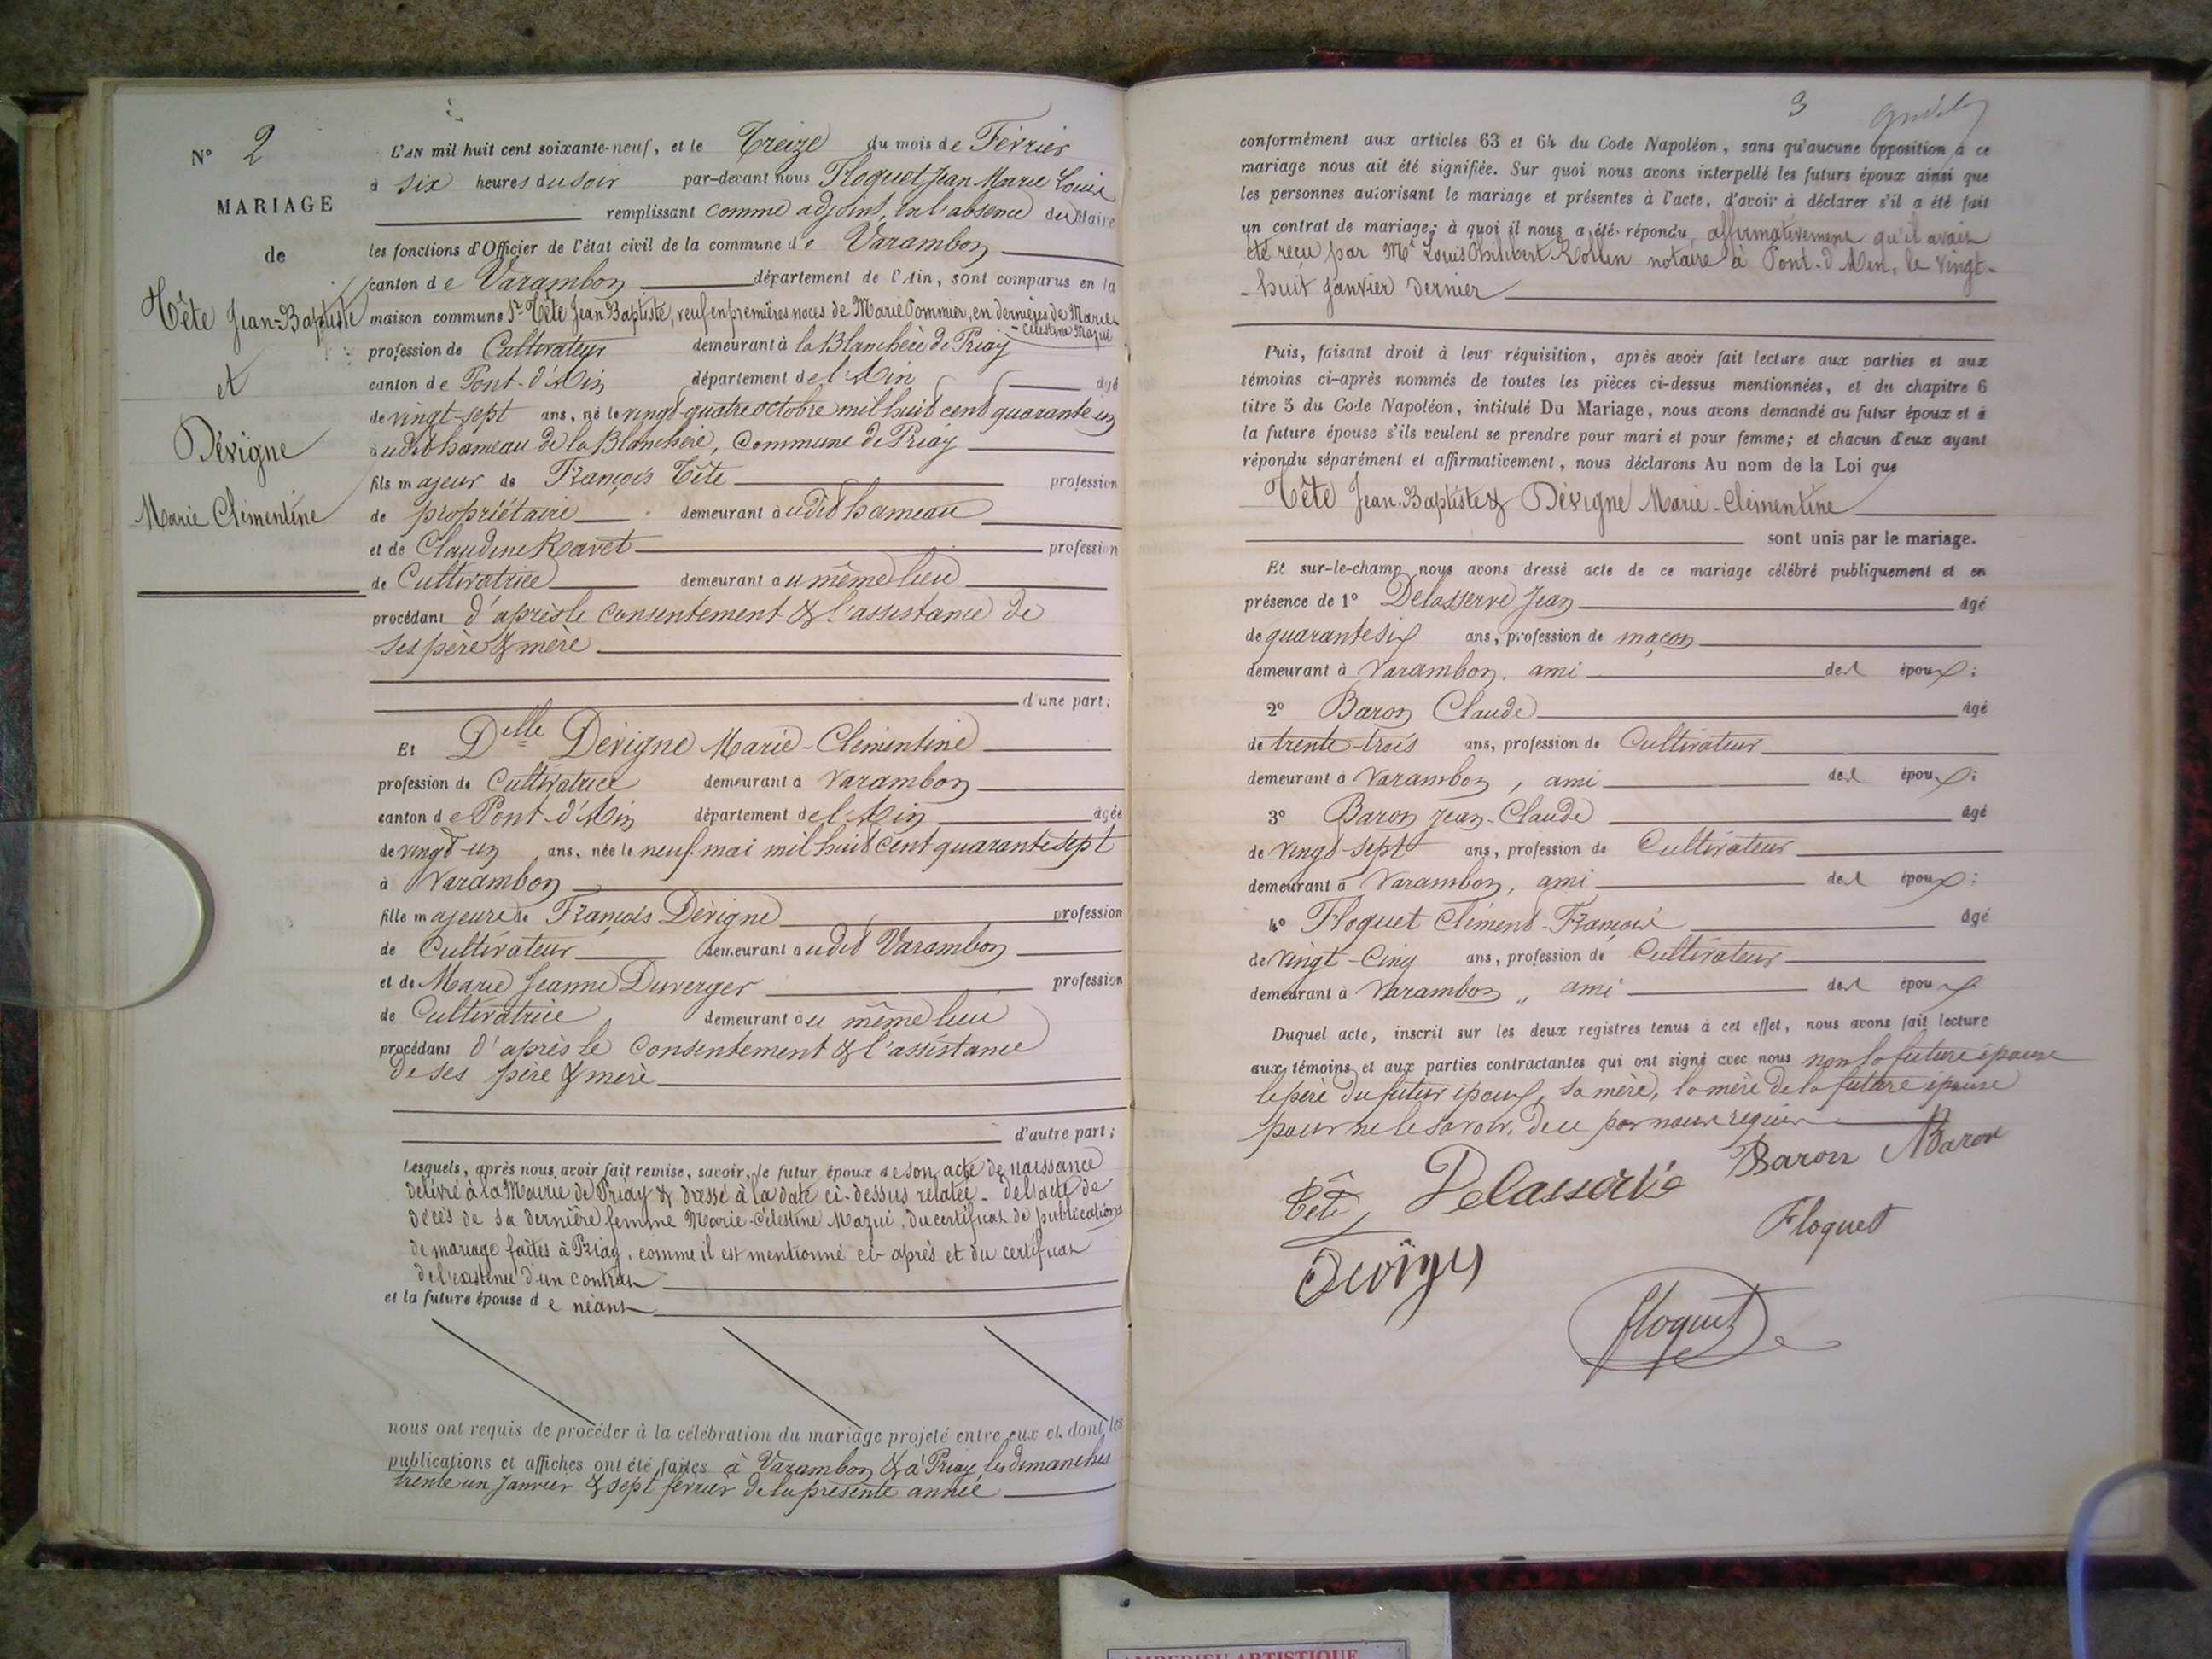 N° 2
MARIAGE
de
Tête Jean-Baptiste
et
Dévigne
Marie Clémentine
L'AN mil huit cent soixante-neuf, et le Treize du mois de Février
à six heures du soir par-devant nous Floquet Jean Marie Louis
remplissant comme adjoint, en l'absence du Maire
les fonctions d'Officier de l'état civil de la commune de Varambon
canton de Varambon département de l'Ain, sont comparus en la
maison commune Sr Tête Jean Baptiste, veuf en premières noces de Marie Pommier, en dernières de Marie-
Célestine Mazui
profession de Cultivateur demeurant à la Blanchère de Priay
canton de Pont-d'Ain département de l'Ain âgé
de vingt-sept ans, né le vingt-quatre octobre mil huit cent quarante un
audit hameau de la Blanchère, Commune de Priay
fils majeur de François Tête profession
de propriétaire demeurant audit hameau
et de Claudine Ravet profession
de Cultivatrice demeurant au même lieu
procédant d'après le consentement & l'assistance de
ses père & mère
d'une part;
Et Delle Dévigne Marie-Clémentine
profession de Cultivatrice demeurant à Varambon
canton de Pont-d'Ain département de l'Ain âgée
de vingt-un ans, née le neuf mai mil huit cent quarante sept
à Varambon
fille majeure de François Dévigne profession
de Cultivateur demeurant audit Varambon
et de Marie Jeanne Duverger profession
de Cultivatrice demeurant au même lieu
procédant d'après le Consentement & l'assistance
de ses père & mère
d'autre part;
Lesquels, après nous avoir fait remise, savoir, le futur époux de son acte de naissance
délivré à la Mairie de Priay & dressé à la date ci-dessus relatée - de l'acte de
décès de sa dernière femme Marie-Célestine Mazui, du certificat de publications
de mariage faites à Priay, comme il est mentionné ci-après et du certificat
de l'existence d'un contrat
et la future épouse de néant
nous ont requis de procéder à la célébration du mariage projeté entre eux et dont les
publications et affiches ont été faites à Varambon & à Priay les dimanches
trente un Janvier & sept février de la présente année
3
conformément aux articles 63 et 64 du Code Napoléon, sans qu'aucune opposition à ce
mariage nous ait été signifiée. Sur quoi nous avons interpellé les futurs époux ainsi que
les personnes autorisant le mariage et présentes à l'acte, d'avoir à déclarer s'il a été fait
un contrat de mariage; à quoi il nous a été répondu affirmativement qu'il avait
été reçu par Me Louis Philibert Rollin notaire à Pont-d'Ain, le vingt-
-huit Janvier dernier
Puis, faisant droit à leur réquisition, après avoir fait lecture aux parties et aux
témoins ci-après nommés de toutes les pièces ci-dessus mentionnées, et du chapitre 6
titre 5 du Code Napoléon, intitulé Du Mariage, nous avons demandé au futur époux et à
la future épouse s'ils veulent se prendre pour mari et pour femme; et chacun d'eux ayant
répondu séparément et affirmativement, nous déclarons Au nom de la Loi que
Tête Jean-Baptiste & Dévigne Marie-Clémentine
sont unis par le mariage.
Et sur-le-champ nous avons dressé acte de ce mariage célébré publiquement et en
présence de 1° Delasserve Jean âgé
de quarante six ans, profession de maçon
demeurant à Varambon, ami de l époux;
2° Baron Claude âgé
de trente-trois ans, profession de Cultivateur
demeurant à Varambon, ami de l époux;
3° Baron Jean-Claude âgé
de vingt-sept ans, profession de Cultivateur
demeurant à Varambon, ami de l époux;
4° Floquet Clément-François âgé
de vingt-cinq ans, profession de Cultivateur
demeurant à Varambon, ami de l époux
Duquel acte, inscrit sur les deux registres tenus à cet effet, nous avons fait lecture
aux témoins et aux parties contractantes qui ont signé avec nous non la future épouse
le père du futur époux, sa mère, la mère de la future épouse
pour ne le savoir, de ce par nous requis
Tête Delasserve Baron Baron
Floquet
Devigne
Floquet